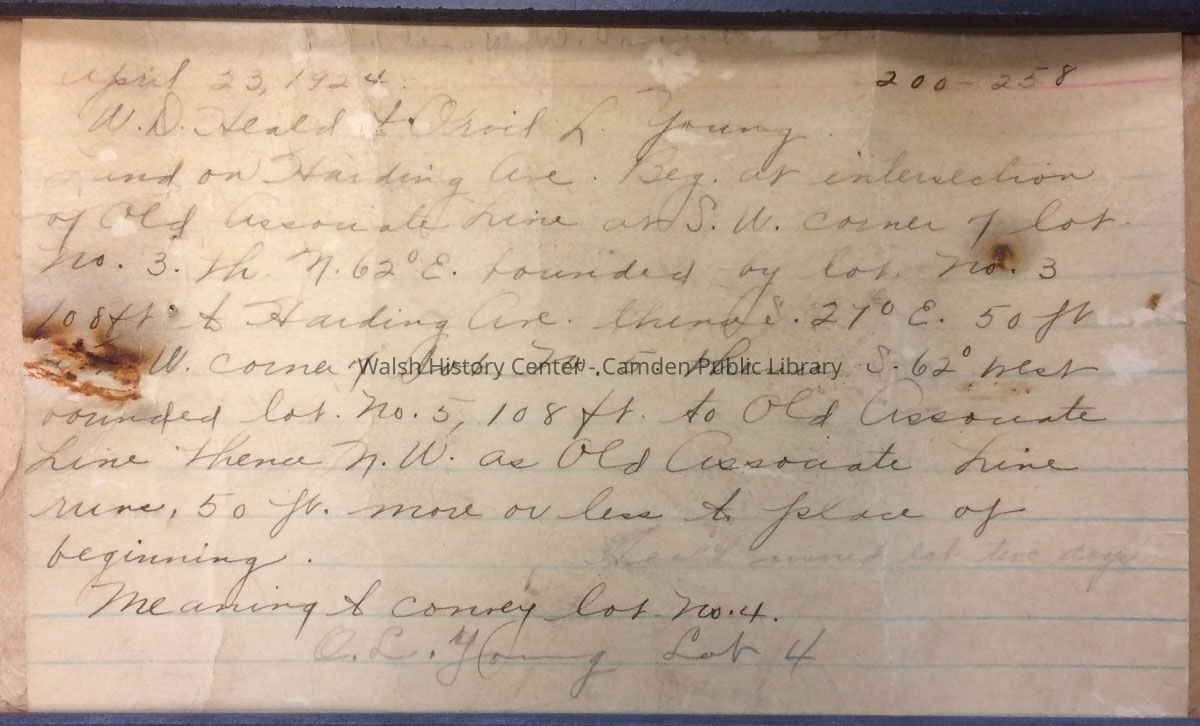 April 23, 1924 200-258
W. D. Heald to Orvil L. Young
Land on Harding Ave. Beg. at intersection
of Old Associate Line at S. W. corner of lot
No. 3. th. N. 62° E. bounded by lot. No. 3
108 ft to Harding Ave. thence S. 27° E. 50 ft
W. corner of Lot No. 5 thence S. 62° West
bounded lot. No. 5, 108 ft. to Old Associate
Line thence N. W. as Old Associate Line
runs, 50 ft. more or less to place of
beginning. Heald owned lot two days
Meaning to convey lot No. 4.
O. L. Young Lot 4
Walsh History Center - Camden Public Library